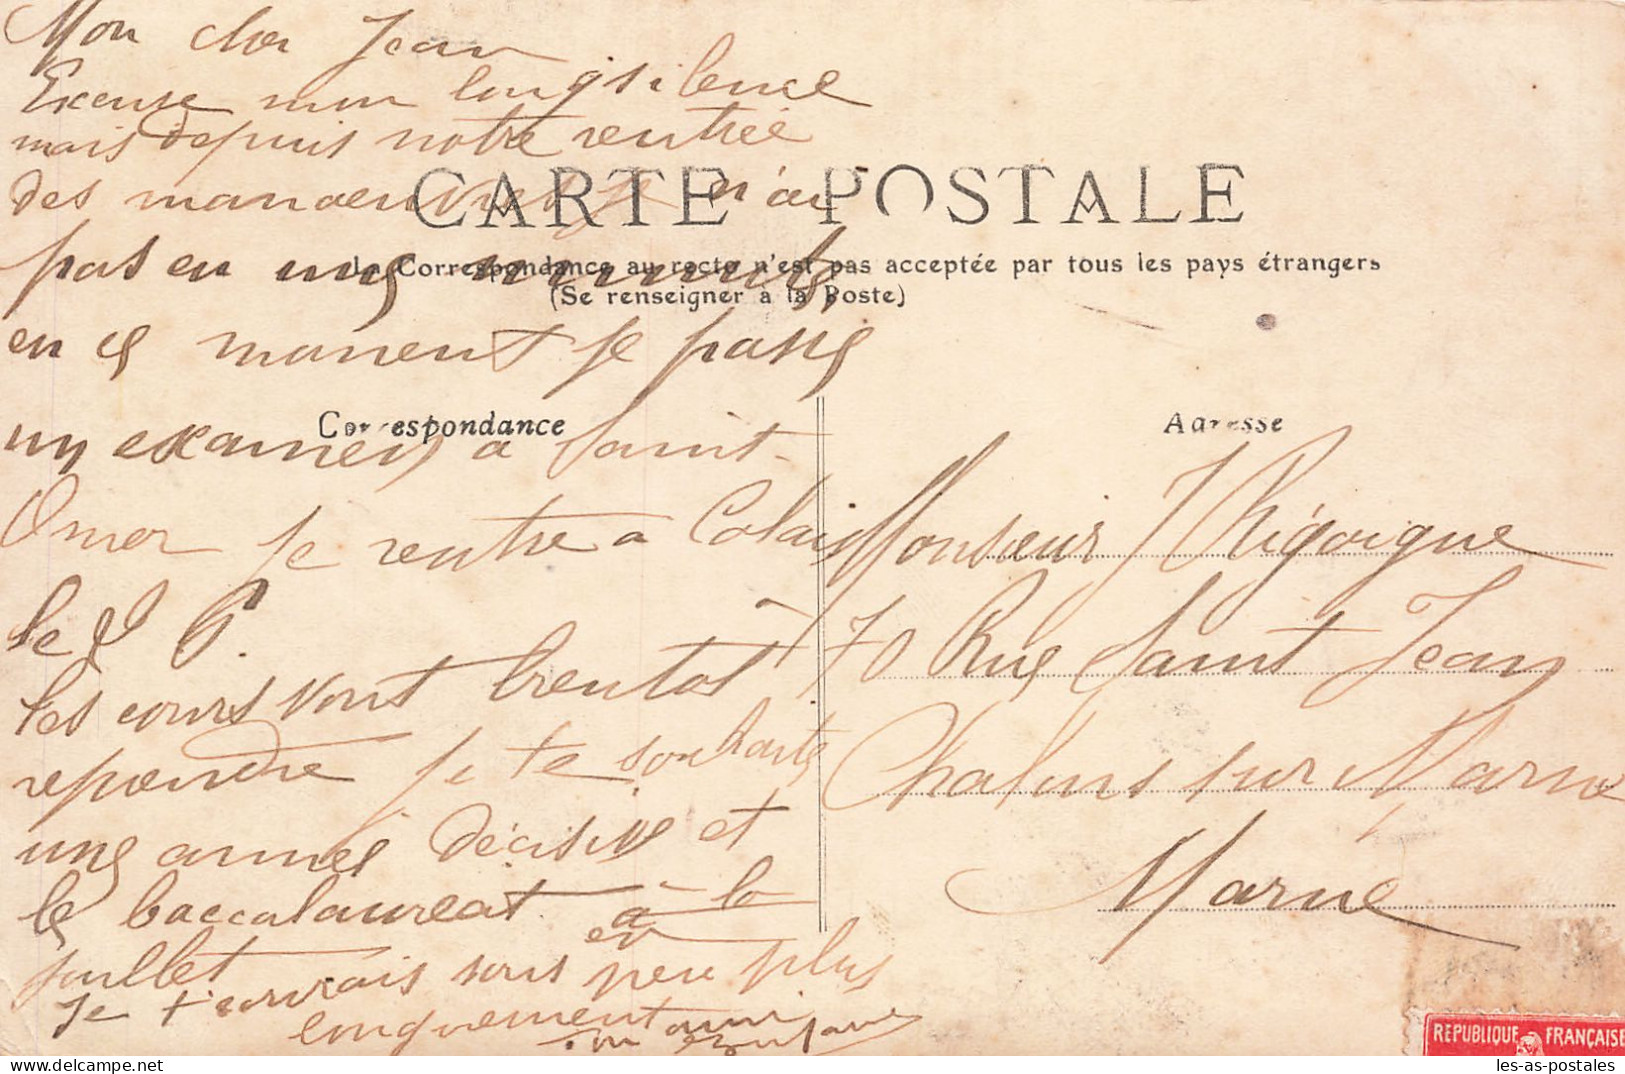 Mon cher Jean
Excuse mon long silence
mais depuis notre rentrée
des manoeuvres je n'ai
pas eu une minute
en ce moment je passe
un examen a Saint-
Omer je rentre a Calais
le
les cours vont bientot
reprendre je te souhaite
une année décisive et
le baccalaureat à la
en
juillet
Je t'ecrirais sous peu plus
longuement
CARTE POSTALE
La Correspondance au recto n'est pas acceptée par tous les pays étrangers
(Se renseigner à la Poste)
Correspondance
Adresse
Monsieur J Rigoigne
70 Rue Saint Jean
Chalons sur Marne
Marne
REPUBLIQUE FRANÇAISE
les-as-postales